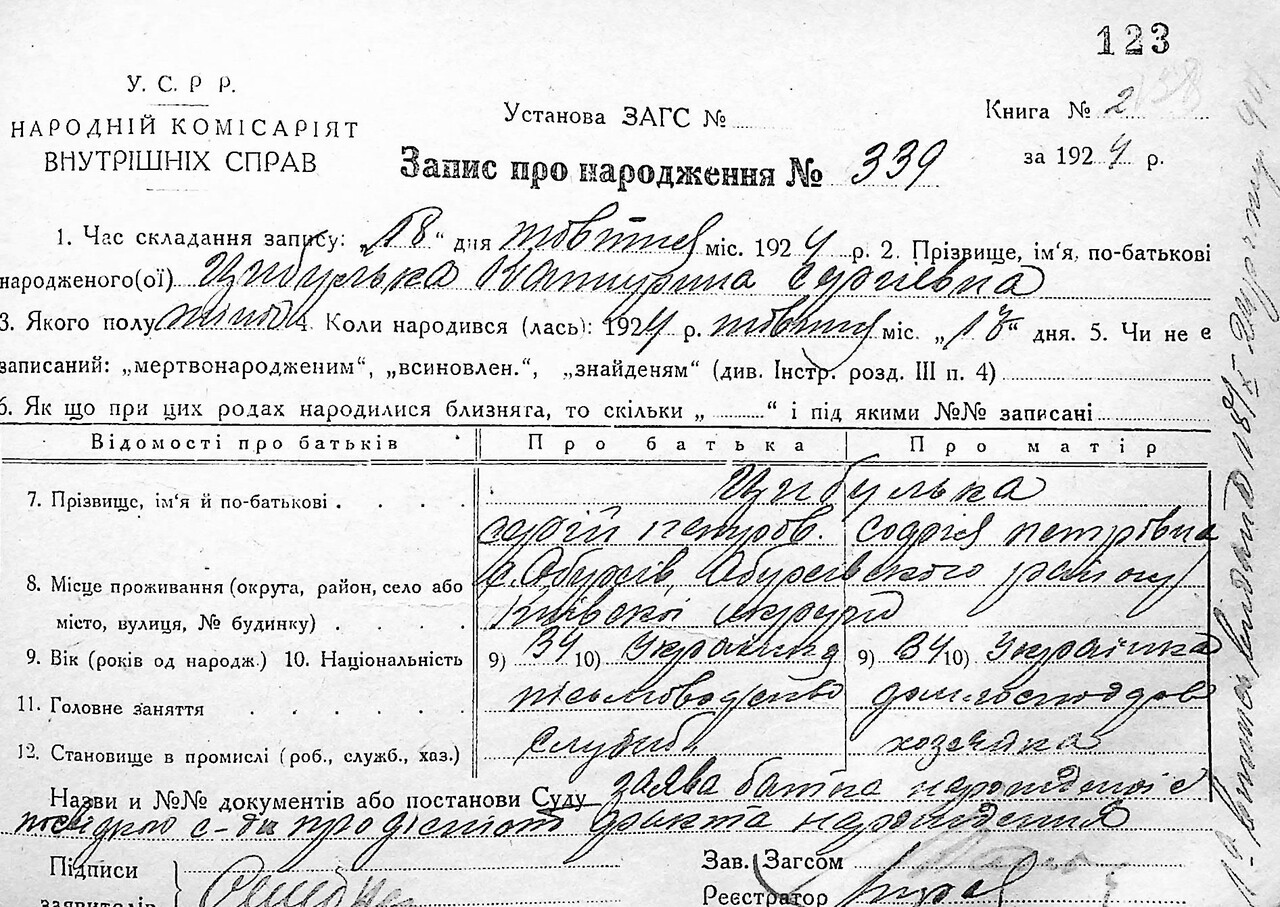 123
У. С. Р Р.
НАРОДНІЙ КОМІСАРІЯТ
ВНУТРІШНІХ СПРАВ
Установа ЗАГС №
Книга № 2
за 1924 р.
Запис про народження № 339
1. Час складання запису: „18“ дня жовтня міс. 1924 р. 2. Прізвище, ім‘я, по-батькові
народженого(ої) Цибулька Катерина Сергіевна
3. Якого полу жіноч. 4. Коли народився (лась): 1924 р. жовтня міс. „18“ дня. 5. Чи не є
записаний: „мертвонародженим“, „всиновлен.“, „знайденям“ (див. Інстр. розд. III п. 4)
6. Як що при цих родах народилися близняга, то скільки „ “ і під якими №№ записані
Відомості про батьків Про батька Про матір
7. Прізвище, ім‘я й по-батькові Цибулька
Сергій Петров. Софія Петрівна
8. Місце проживання (округа, район, село або с. Обухів, Обухівского району
місто, вулиця, № будинку) Київскої округи
9. Вік (років од народж.) 10. Національність 9) 34 10) Українец 9) 34 10) Українка
11. Головне заняття письмоводство
12. Становище в промислі (роб., служб., хаз.) служб. хозяйка
Назви и №№ документів або постанови Суду заява батька народженої
с-ди про дісність факта народження
Підписи
заявителів
Зав. Загсом
Реєстратор